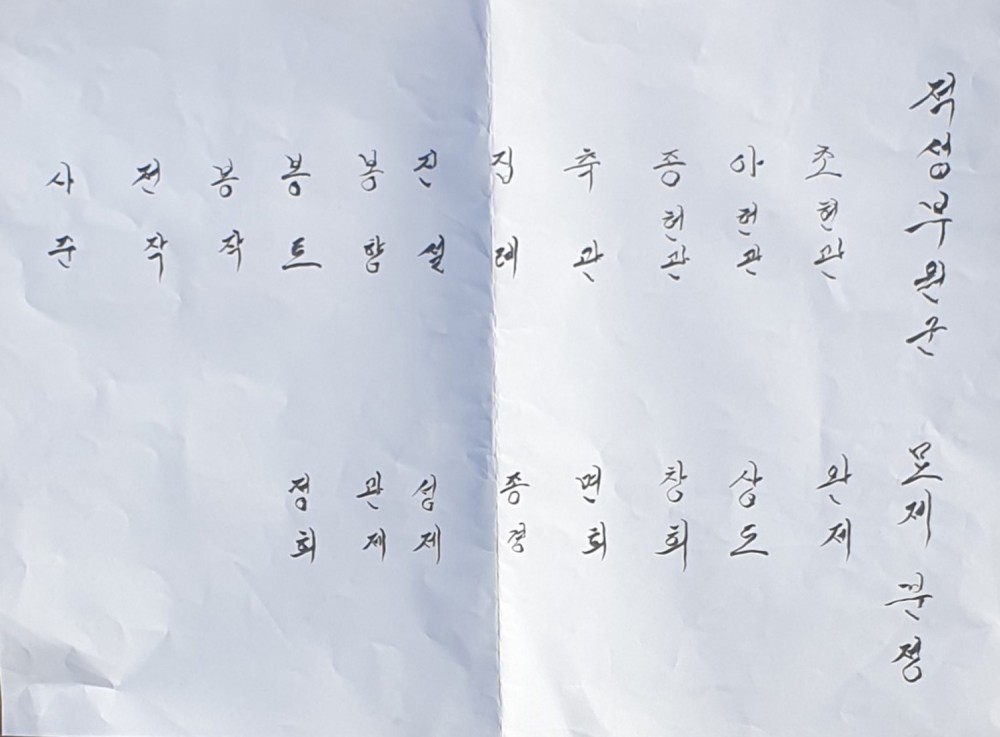 적성부원군 묘제 분정
초헌관 완제
아헌관 상도
종헌관 창희
축관 면희
집례 종경
진설 성제
봉향 관제
봉로 정희
봉작
전작
사준